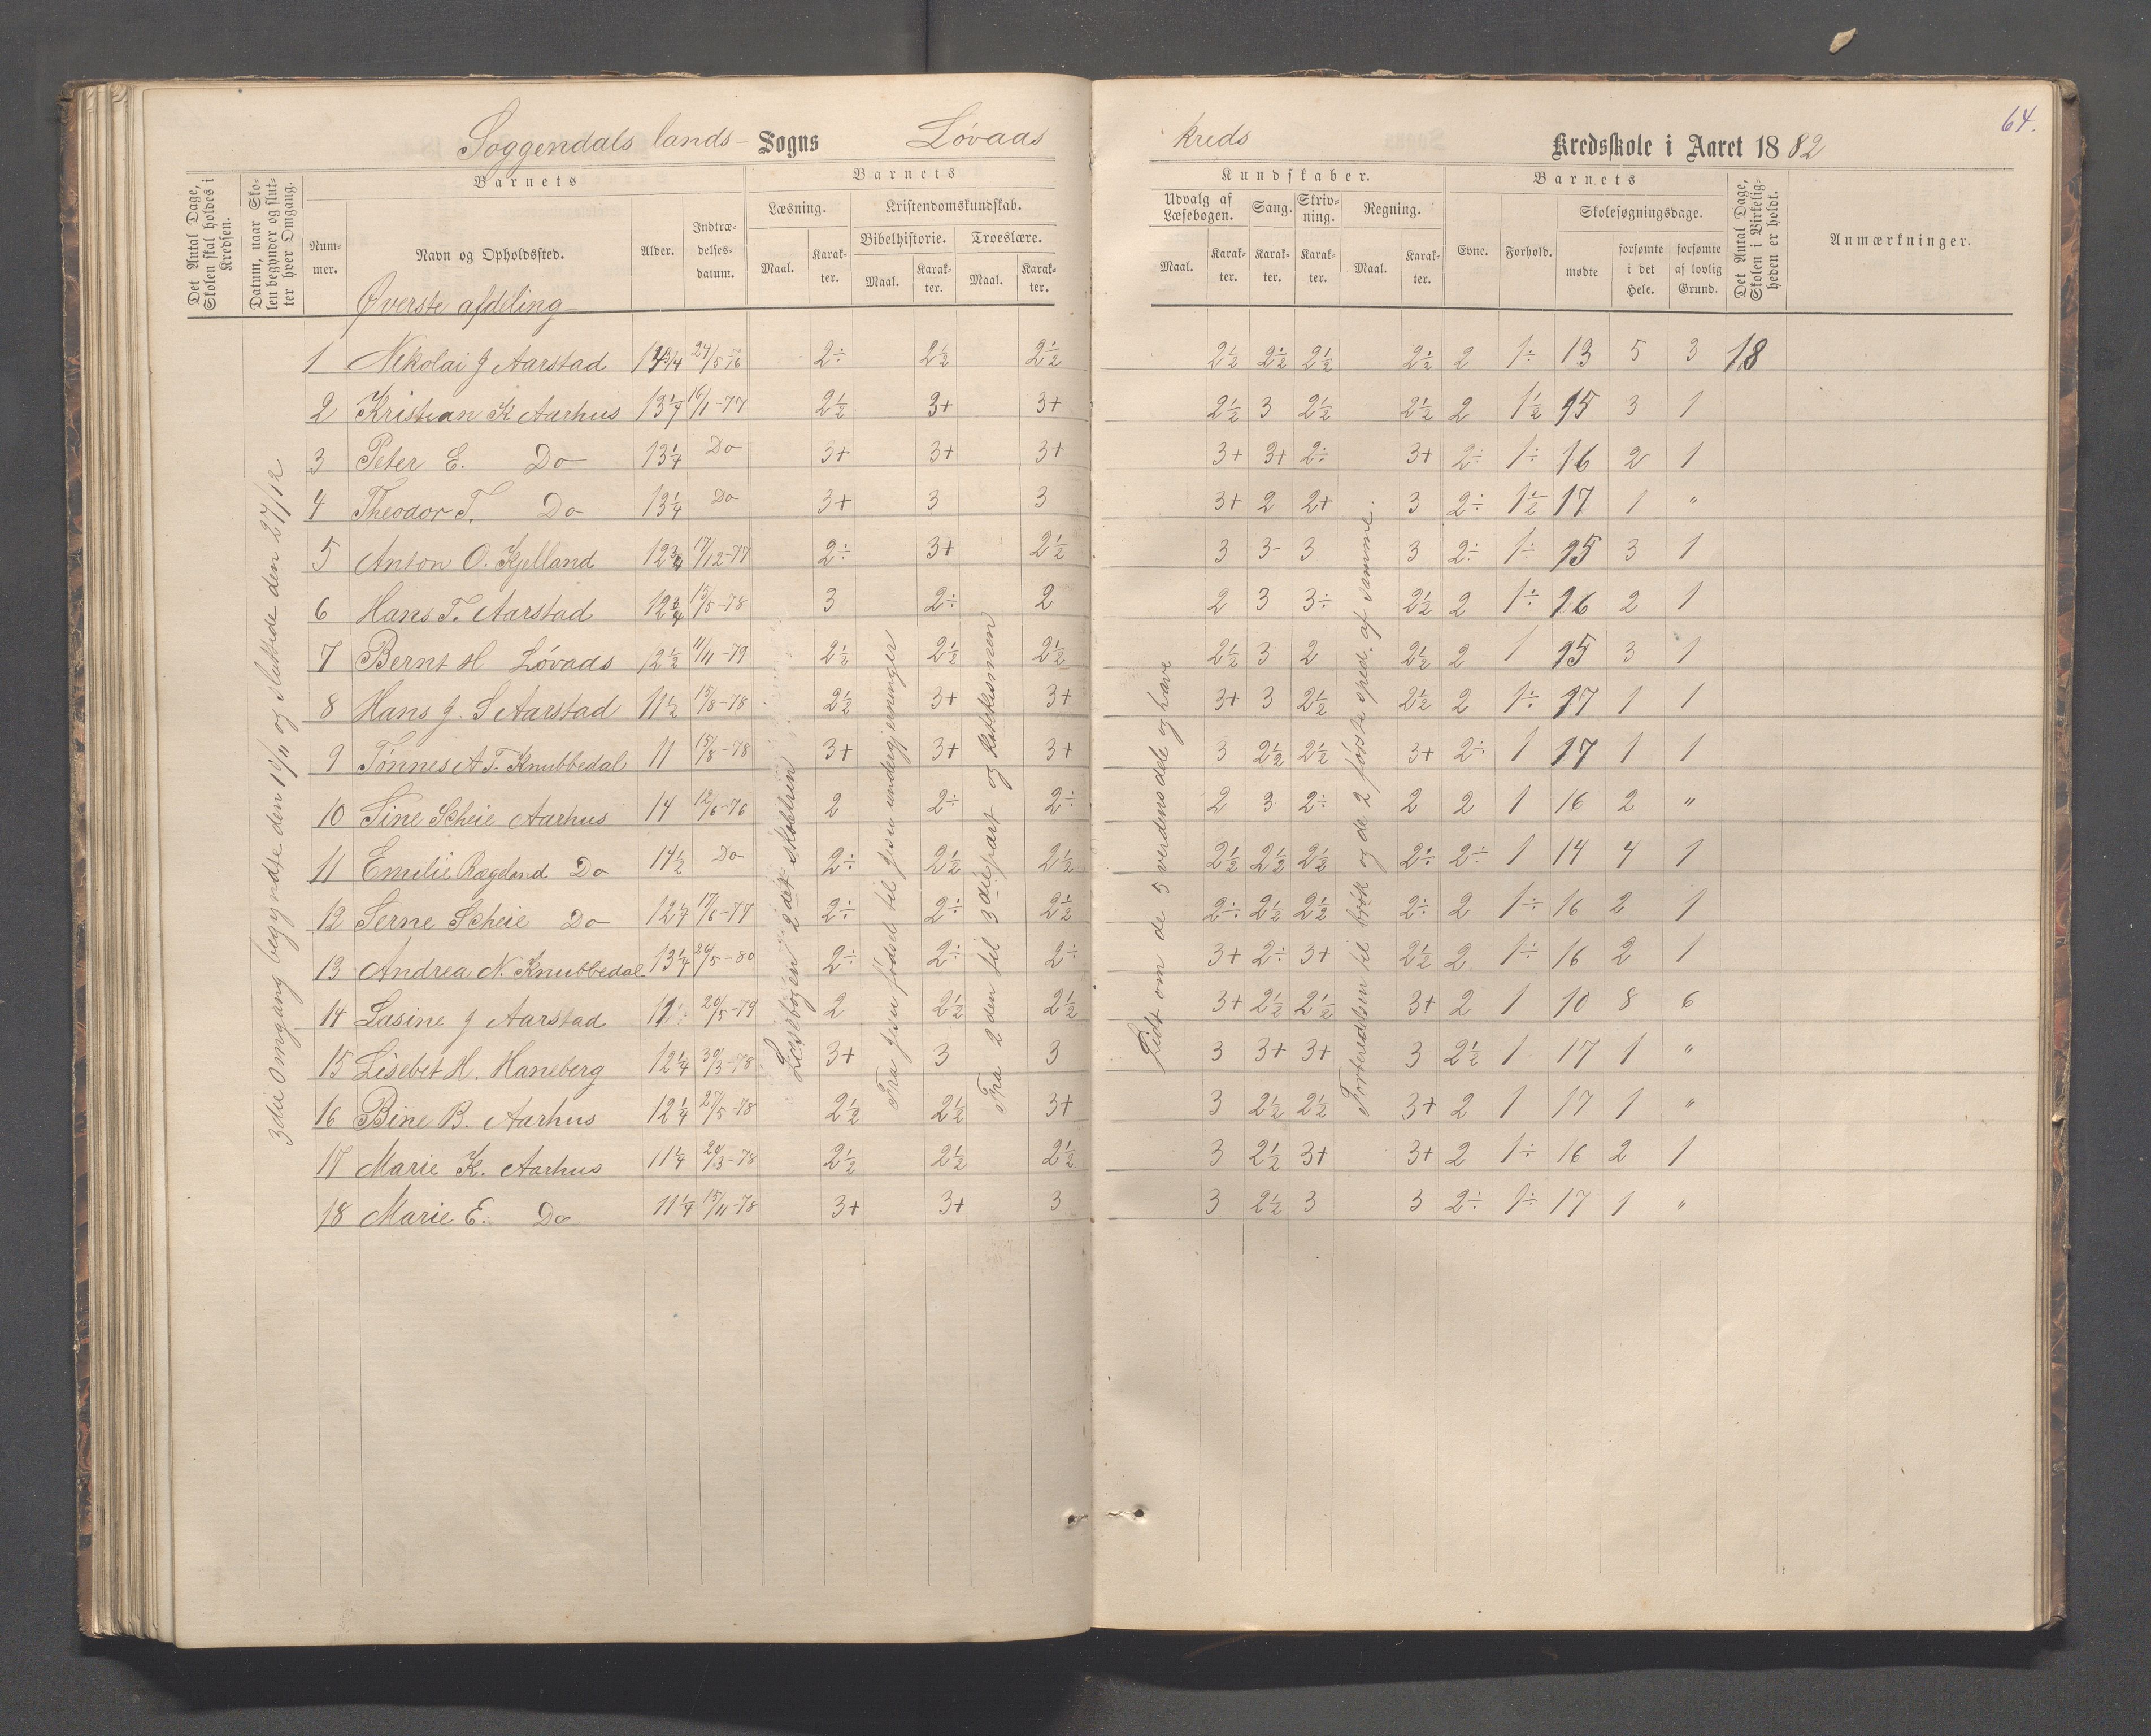 64.
Soggendals lands- Sogns Løvaas kreds Kredsskole i Aaret 1882
Det Antal Dage, Skolen skal holdes i Kredsen.
Datum, naar Skolen begynder og slutter hver Omgang.
Barnets
Nummer.
Navn og Opholdssted.
Alder.
Indtrædelsesdatum.
Barnets
Læsning.
Maal.
Karakter.
Kristendomskundskab.
Bibelhistorie.
Maal.
Karakter.
Troeslære.
Maal.
Karakter.
Kundskaber.
Udvalg af Læsebogen.
Maal.
Karakter.
Sang.
Karakter.
Skrivning.
Karakter.
Regning.
Maal.
Karakter.
Barnets
Evne.
Forhold.
Skolesøgningsdage.
mødte
forsømte i det Hele.
forsømte af lovlig Grund.
Det Antal Dage, Skolen i Virkeligheden er holdt.
Anmærkninger.
Øverste afdeling
1 Nikolai J Aarstad 24/5-76 2÷ 2½ 2½ 2½ 2½ 2½ 2½ 2 1÷ 13 5 3 18
2 Kristian K Aarhus 13¼ 16/1-77 2½ 3+ 3+ 2½ 3 2½ 2½ 2 1½ 15 3 1
3 Peter E. Do 13¼ Do 3+ 3+ 3+ 3+ 3+ 2÷ 3+ 2÷ 1÷ 16 2 1
4 Theodor T. Do 13¼ Do 3+ 3 3 3+ 2 2+ 3 2÷ 1½ 17 1 "
5 Anton O. Kjelland 12¾ 17/12-77 2÷ 3+ 2½ 3 3- 3 3 2÷ 1÷ 15 3 1
6 Hans T. Aarstad 12¾ 15/5-78 3 2÷ 2 2 3 3÷ 2½ 2 1÷ 16 2 1
7 Bernt H Løvaas 12½ 11/11-79 2½ 2½ 2½ 2½ 3 2 2½ 2 1 15 3 1
8 Hans J. S Aarstad 11½ 15/8-78 2½ 3+ 3+ 3+ 3 2½ 2½ 2 1÷ 17 1 1
9 Tønnes A T. Knubbedal 11 15/8-78 3+ 3+ 3+ 3 2½ 2½ 3+ 2÷ 1 17 1 1
10 Sine Scheie Aarhus 14 12/6-76 2 2÷ 2÷ 2 3 2÷ 2 2 1 16 2 "
11 Emilie Rægeland Do 14½ Do 2÷ 2½ 2½ 2½ 2½ 2½ 2÷ 2÷ 1 14 4 1
12 Serne Scheie Do 12¼ 17/6-77 2÷ 2÷ 2½ 2÷ 2½ 2½ 2÷ 2 1÷ 16 2 1
13 Andrea N. Knubbedal 13¼ 26/5-80 2÷ 2÷ 2÷ 3+ 2÷ 3+ 2½ 2 1÷ 16 2 1
14 Lasine J Aarstad 20/5-79 2 2½ 2½ 3+ 2½ 2½ 3+ 2 1 10 8 6
15 Lisebet H. Haneberg 12¼ 30/3-78 3+ 3 3 3 3+ 3+ 3 2½ 1 17 1 "
16 Bine B. Aarhus 12¼ 27/5-78 2½ 2½ 3+ 3 2½ 2½ 3+ 2 1 17 1 "
17 Marie K. Aarhus 11¼ 20/3-78 2½ 2½ 2½ 3 2½ 3+ 3+ 2 1÷ 16 2 1
18 Marie E. Do 11¼ 15/11-78 3+ 3+ 3 3 2½ 3 3 2÷ 1÷ 17 1 "
3die Omgang begyndte den og sluttede den 27/12
Læsebogen 2det skoletrin
Fra jesu fødsel til jesu undergjerninger
Fra 2den til 3die part og katekismen
Lidt om de 5 verdensdele og have
Forberedelsen til brøk og de 2 første sped. af samme.